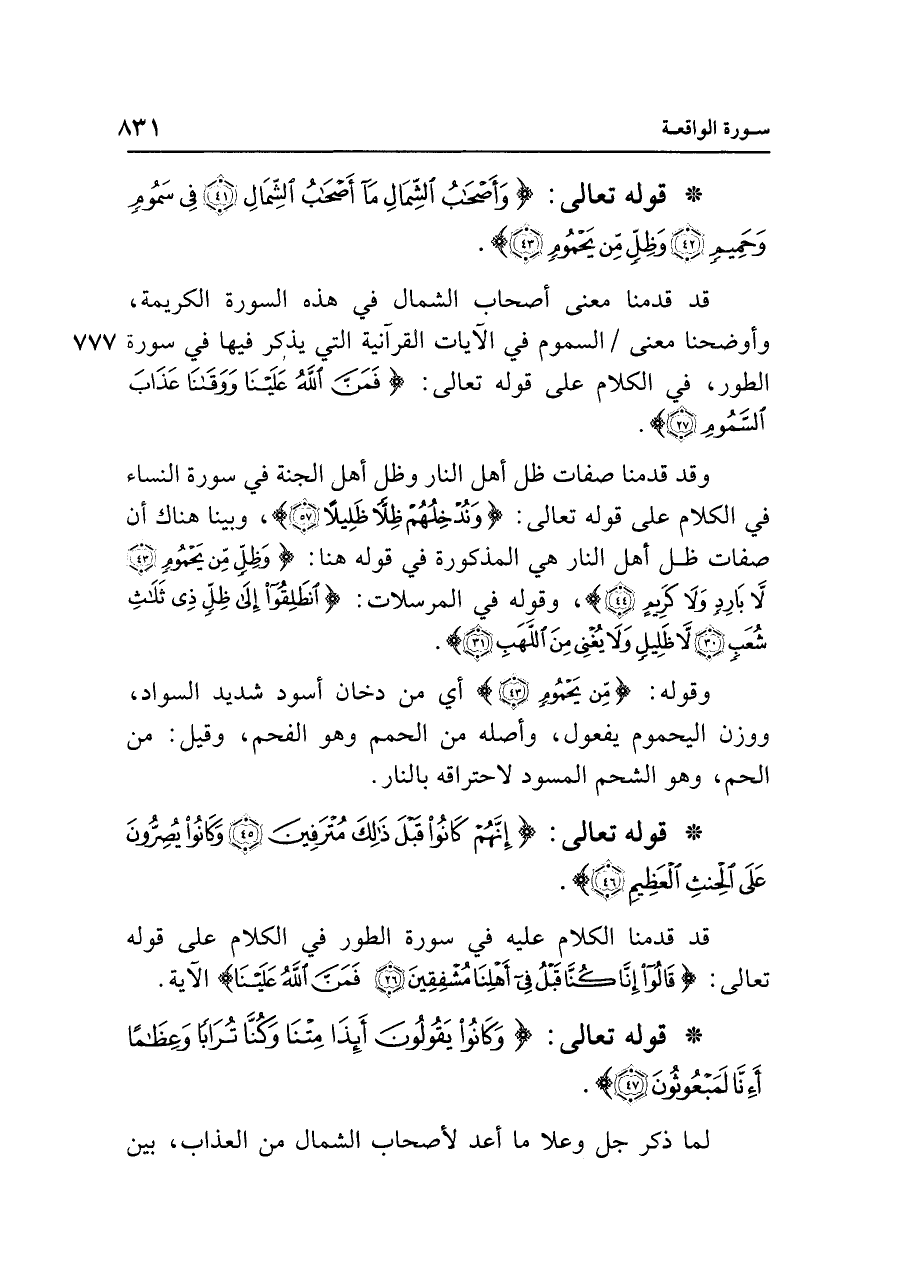 سورة الواقعة ٨٣١
* قوله تعالى: ﴿ وَأَصْحَٰبُ ٱلشِّمَالِ مَآ أَصْحَٰبُ ٱلشِّمَالِ ۝٤١ فِى سَمُومٍ
وَحَمِيمٍ ۝٤٢ وَظِلٍّ مِّن يَحْمُومٍ ۝٤٣﴾.
قد قدمنا معنى أصحاب الشمال في هذه السورة الكريمة،
وأوضحنا معنى / السموم في الآيات القرآنية التي يذكر فيها في سورة ٧٧٧
الطور، في الكلام على قوله تعالى: ﴿ فَمَنَّ ٱللَّهُ عَلَيْنَا وَوَقَىٰنَا عَذَابَ
ٱلسَّمُومِ ۝٢٧﴾.
وقد قدمنا صفات ظل أهل النار وظل أهل الجنة في سورة النساء
في الكلام على قوله تعالى: ﴿ وَنُدْخِلُهُمْ ظِلًّا ظَلِيلًا ۝٥٧﴾، وبينا هناك أن
صفات ظل أهل النار هي المذكورة في قوله هنا: ﴿ وَظِلٍّ مِّن يَحْمُومٍ ۝٤٣
لَّا بَارِدٍ وَلَا كَرِيمٍ ۝٤٤﴾، وقوله في المرسلات: ﴿ ٱنطَلِقُوٓا۟ إِلَىٰ ظِلٍّ ذِى ثَلَٰثِ
شُعَبٍ ۝٣٠ لَّا ظَلِيلٍ وَلَا يُغْنِى مِنَ ٱللَّهَبِ ۝٣١﴾.
وقوله: ﴿ مِّن يَحْمُومٍ ۝٤٣﴾ أي من دخان أسود شديد السواد،
ووزن اليحموم يفعول، وأصله من الحمم وهو الفحم، وقيل: من
الحم، وهو الشحم المسود لاحتراقه بالنار.
* قوله تعالى: ﴿ إِنَّهُمْ كَانُوا۟ قَبْلَ ذَٰلِكَ مُتْرَفِينَ ۝٤٥ وَكَانُوا۟ يُصِرُّونَ
عَلَى ٱلْحِنثِ ٱلْعَظِيمِ ۝٤٦﴾.
قد قدمنا الكلام عليه في سورة الطور في الكلام على قوله
تعالى: ﴿ قَالُوٓا۟ إِنَّا كُنَّا قَبْلُ فِىٓ أَهْلِنَا مُشْفِقِينَ ۝٢٦ فَمَنَّ ٱللَّهُ عَلَيْنَا﴾ الآية.
* قوله تعالى: ﴿ وَكَانُوا۟ يَقُولُونَ أَئِذَا مِتْنَا وَكُنَّا تُرَابًا وَعِظَٰمًا
أَءِنَّا لَمَبْعُوثُونَ ۝٤٧﴾.
لما ذكر جل وعلا ما أعد لأصحاب الشمال من العذاب، بين